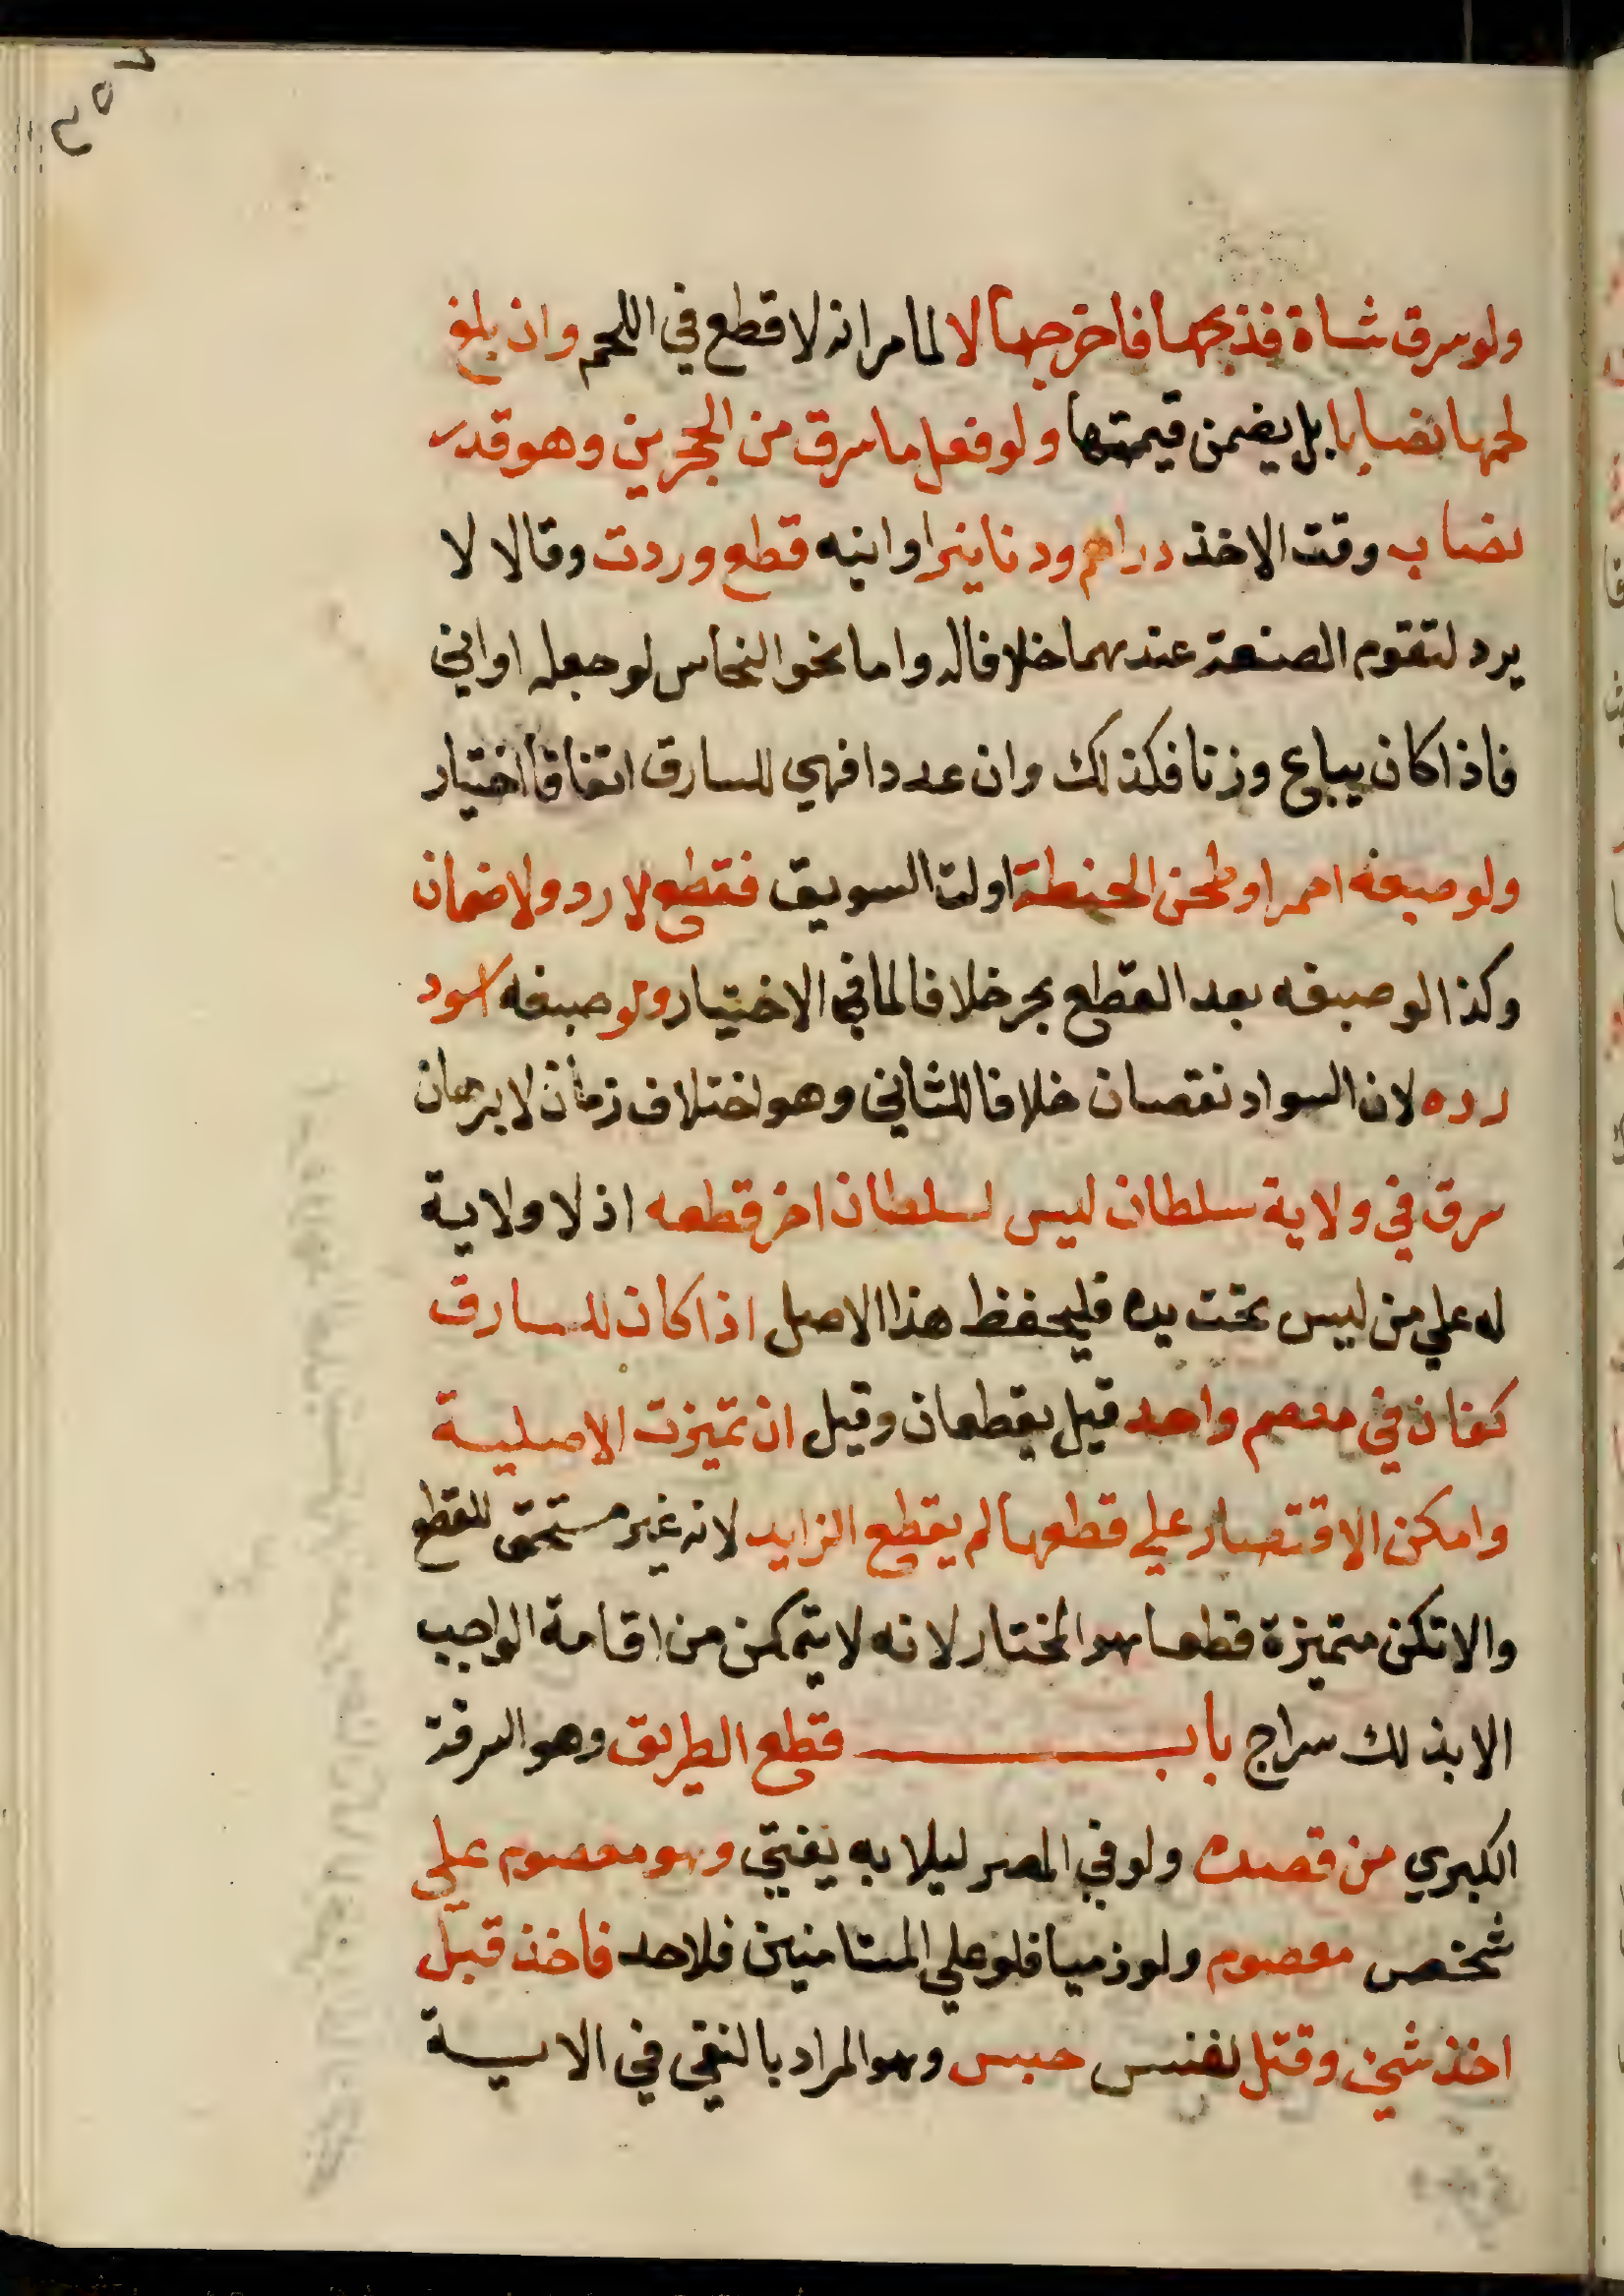 ٢٥٦
ولو سرق شاة فذبحها فاخرجها لا لما مر انه لا قطع في اللحم وان بلغ
لحمها نصابا بل يضمن قيمتها ولو فعل ما سرق من الحجرين وهو قدر
نصاب وقت الاخذ دراهم ودنانير او انيه قطع وردت وقالا لا
يرد لتقوم الصنعة عندهما خلافا له واما نحو النحاس لو جعله اواني
فاذا كان يباع وزنا فكذلك وان عددا فهي للسارق اتفاقا اختيار
ولو صبغه احمر او طحن الحنطة اولت السويق فقطع لا رد ولا ضمان
وكذا لو صبغه بعد القطع بحر خلافا لما في الاختيار ولو صبغه اسود
رده لان السواد نقصان خلافا للثاني وهو اختلاف زمان لا برهان
سرق في ولاية سلطان ليس لسلطان اخر قطعه اذ لا ولاية
له علي من ليس تحت يده فليحفظ هذا الاصل اذا كان للسارق
كفان في معصم واحد قيل يقطعان وقيل ان تميزت الاصلية
وامكن الاقتصار علي قطعها لم يقطع الزايد لانه غير مستحق للقطع
والا تكن متميزة قطعا هو المختار لانه لا يتمكن من اقامة الواجب
الا بذلك سراج باب قطع الطريق وهو السرقة
الكبري من قصده ولو في المصر ليلا به يفتي وهو معصوم علي
شخص معصوم ولو ذميا فلو علي المستامنين فلا حد فاخذ قبل
اخذ شئ وقتل نفس حبس وهو المراد بالنفي في الاية